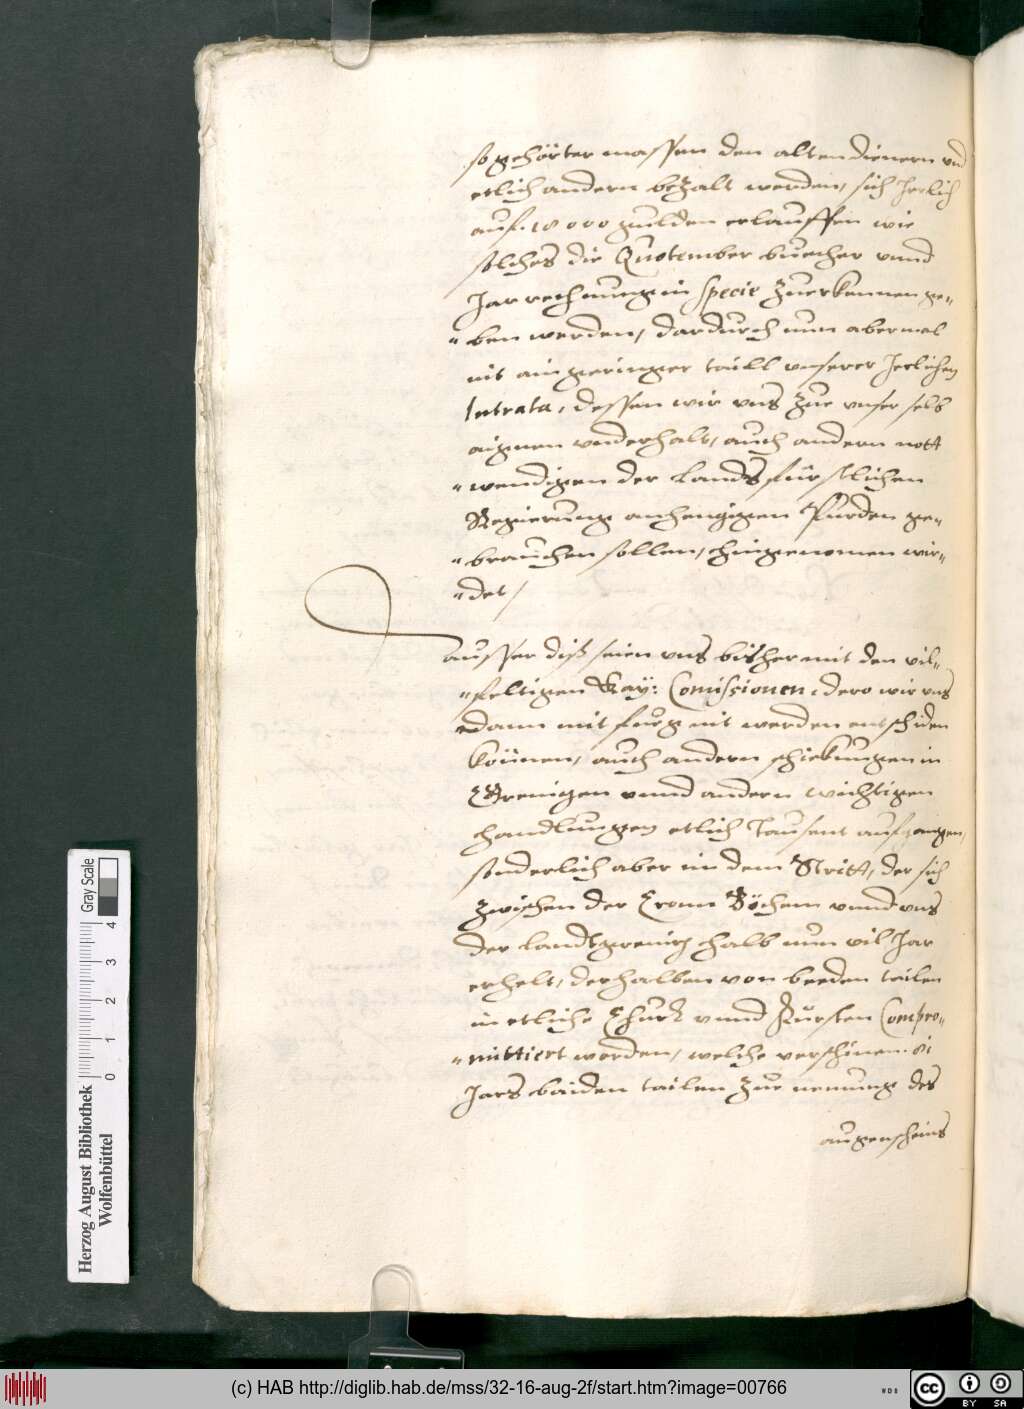 so gehörter massen den alten dienern vnd
etlich andern bezalt werden, sich Jerlich
auf 18000 gulden erlauffen wie
solches die Quotember buecher vnnd
Jar rechnung in specie zuerkennen ge-
ben werden, dardurch nun abermal
nit ain geringer taill vnserer Jerlichen
Intrata, dessen wir vns zue vnser selbs
aignen vnderhalt, auch andern nott
wendigen der Landsfürstlichen
Regierung anhengigen Pürden ge-
brauchen sollen, hingenomen wir-
det /
ausser diß seien vns bisher mit den vil-
feltigen Kay: Comissionen, dero wir vns
dann mit fueg nit werden entschiden
künnen, auch andern schickungen in
Grenigen vnnd andern wichtigen
handlungen etlich Tausent aufgangen,
sonderlich aber in dem Stritt, der sich
zwischen der Cronn Böhem vnnd vns
der landtgrenitz halb nun vil Jar
erhelt, derhalben von beeden tailen
in etliche Churf. vnnd Fürsten Compro-
mittiert worden, welche verschinen 81
Jars baiden tailen zue nemung des
augenscheins
Herzog August Bibliothek
Wolfenbüttel
0 1 2 3 4
Gray Scale
(c) HAB http://diglib.hab.de/mss/32-16-aug-2f/start.htm?image=00766
WDB
cc BY SA